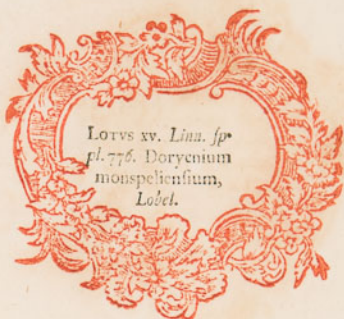 LOTVS XV. Linn. ſp.
pl. 776. Dorycnium
monspelienſium,
Lobel.